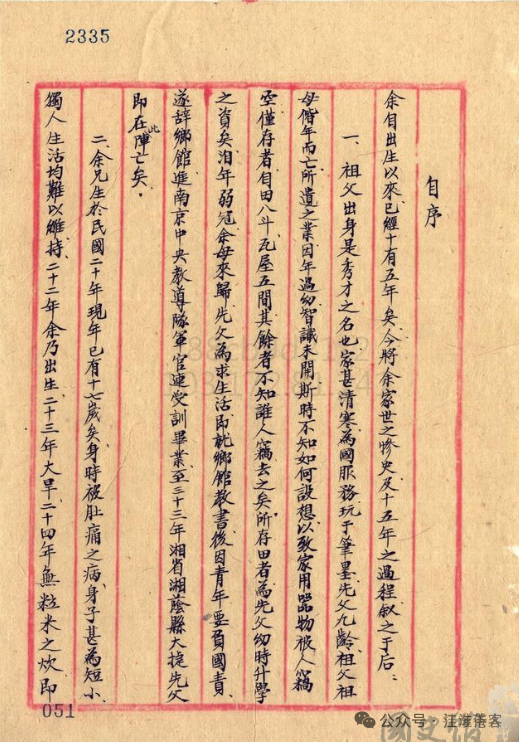 2335
自序
余自出生以來已經十有五年矣今將余家世之慘史及十五年之過程叙之于后：
一、祖父出身是秀才之名也家甚清寒為國服務玩于筆墨先父九齡祖父祖
母偕年而亡所遺之業因年過幼智識未開斯時不知如何設想以致家用器物被人竊
空僅存者自田八斗瓦屋五間其餘者不知誰人竊去之矣所存田者為先父幼時升學
之資矣洎年弱冠余母來歸先父為求生活即就鄉館教書後因青年要負國責
遂辞鄉館進南京中央教導隊軍官連受訓畢業至三十三年湘省湘蔭縣大捷先父
即在此陣亡矣．
二、余兄生於民國二十年現年已有十七歲矣身時被肚痛之病身子甚為短小
獨人生活均難以維持、二十二年余乃出生二十三年大旱二十四年無粒米之炊即
051
公众号·汪淮落客